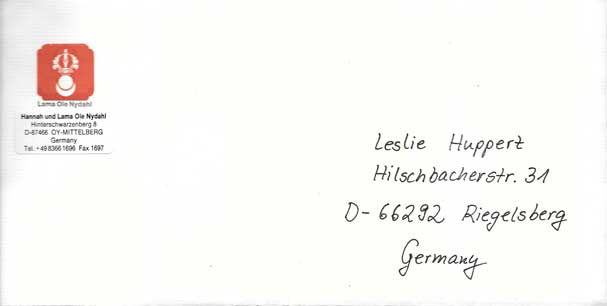 Lama Ole Nydahl
Hannah und Lama Ole Nydahl
Hinterschwarzenberg 8
D-87466 OY-MITTELBERG
Germany
Tel. +49 8366 1696 Fax 1697
Leslie Huppert
Hilschbacherstr. 31
D-66292 Riegelsberg
Germany